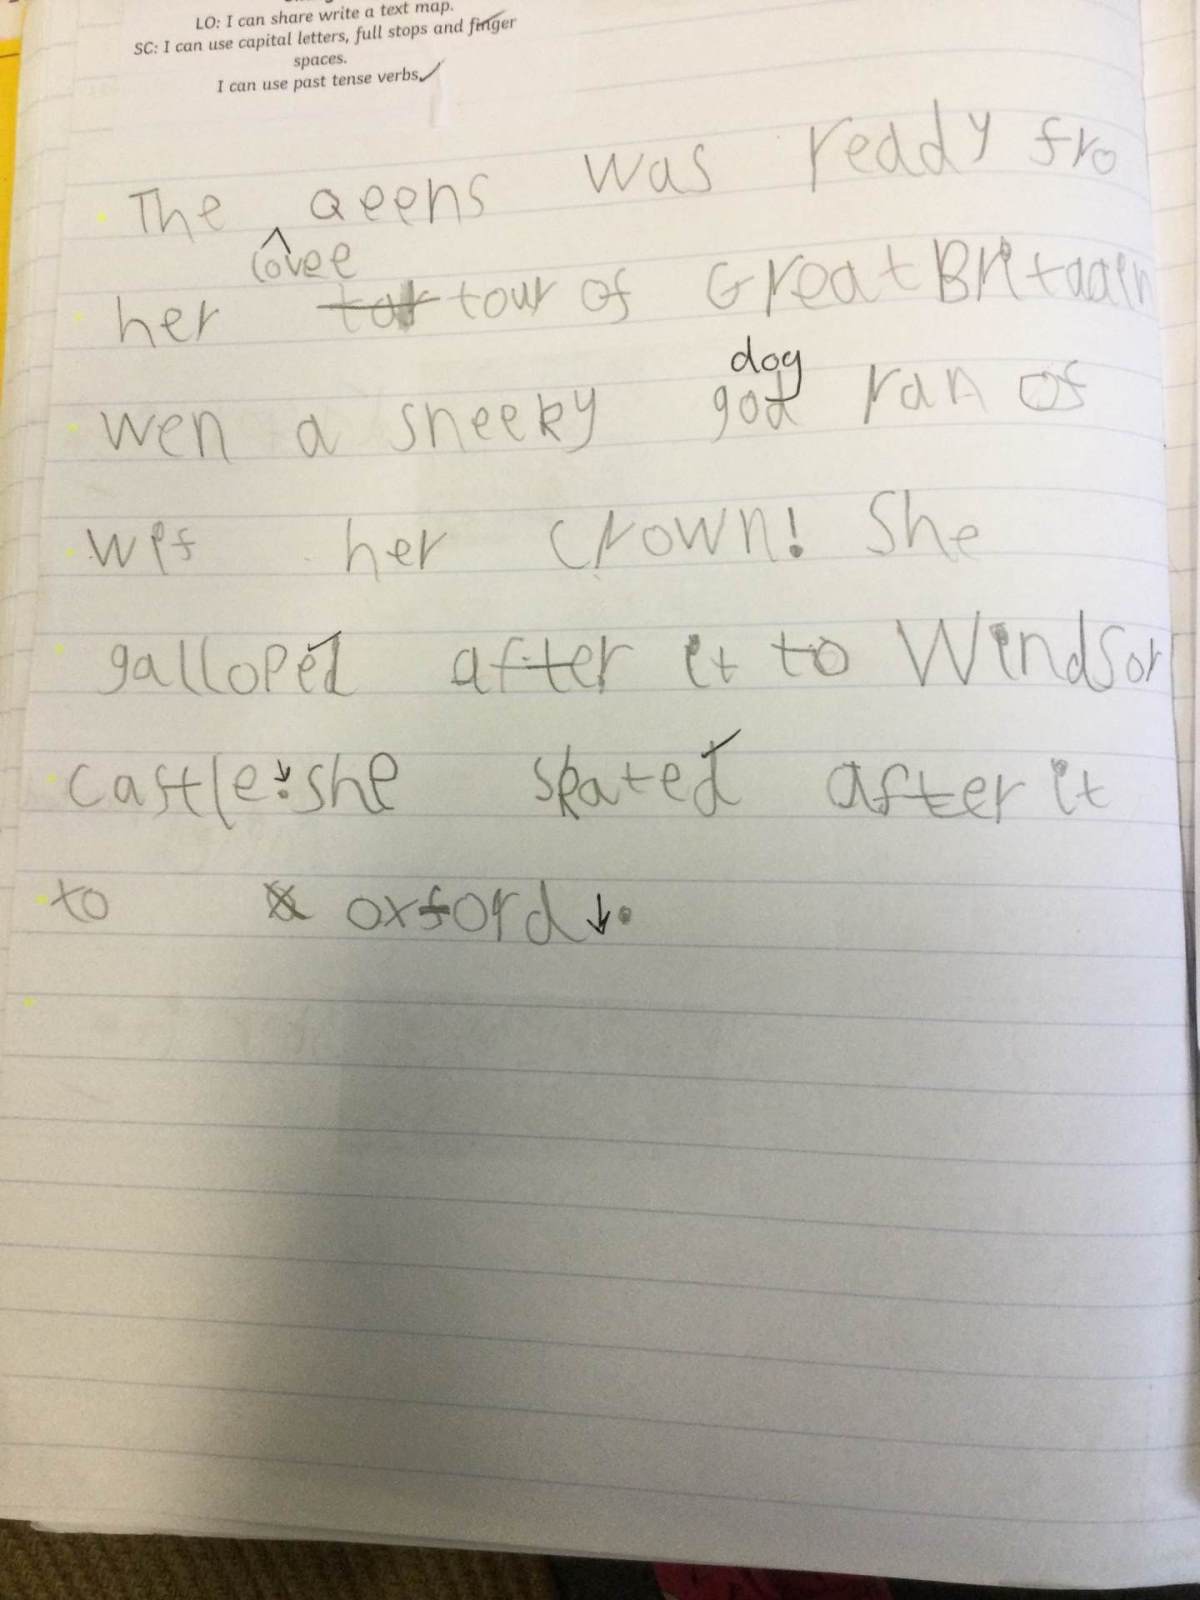 LO: I can share write a text map.
SC: I can use capital letters, full stops and finger
spaces.
I can use past tense verbs
The Qeens was ready fro
lovee
her tour of Great BRitaain
dog
wen a sneeky god ran of
wif her crown! She
galloped after it to Windsor
castle. she skated after it
to oxford.